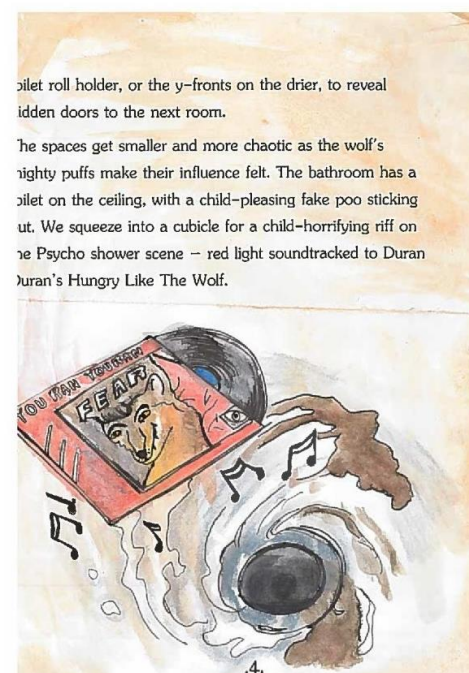 oilet roll holder, or the y-fronts on the drier, to reveal
idden doors to the next room.
he spaces get smaller and more chaotic as the wolf's
ighty puffs make their influence felt. The bathroom has a
oilet on the ceiling, with a child-pleasing fake poo sticking
ut. We squeeze into a cubicle for a child-horrifying riff on
he Psycho shower scene – red light soundtracked to Duran
uran's Hungry Like The Wolf.
YOU RAN YOURAN
FEAR
.4.